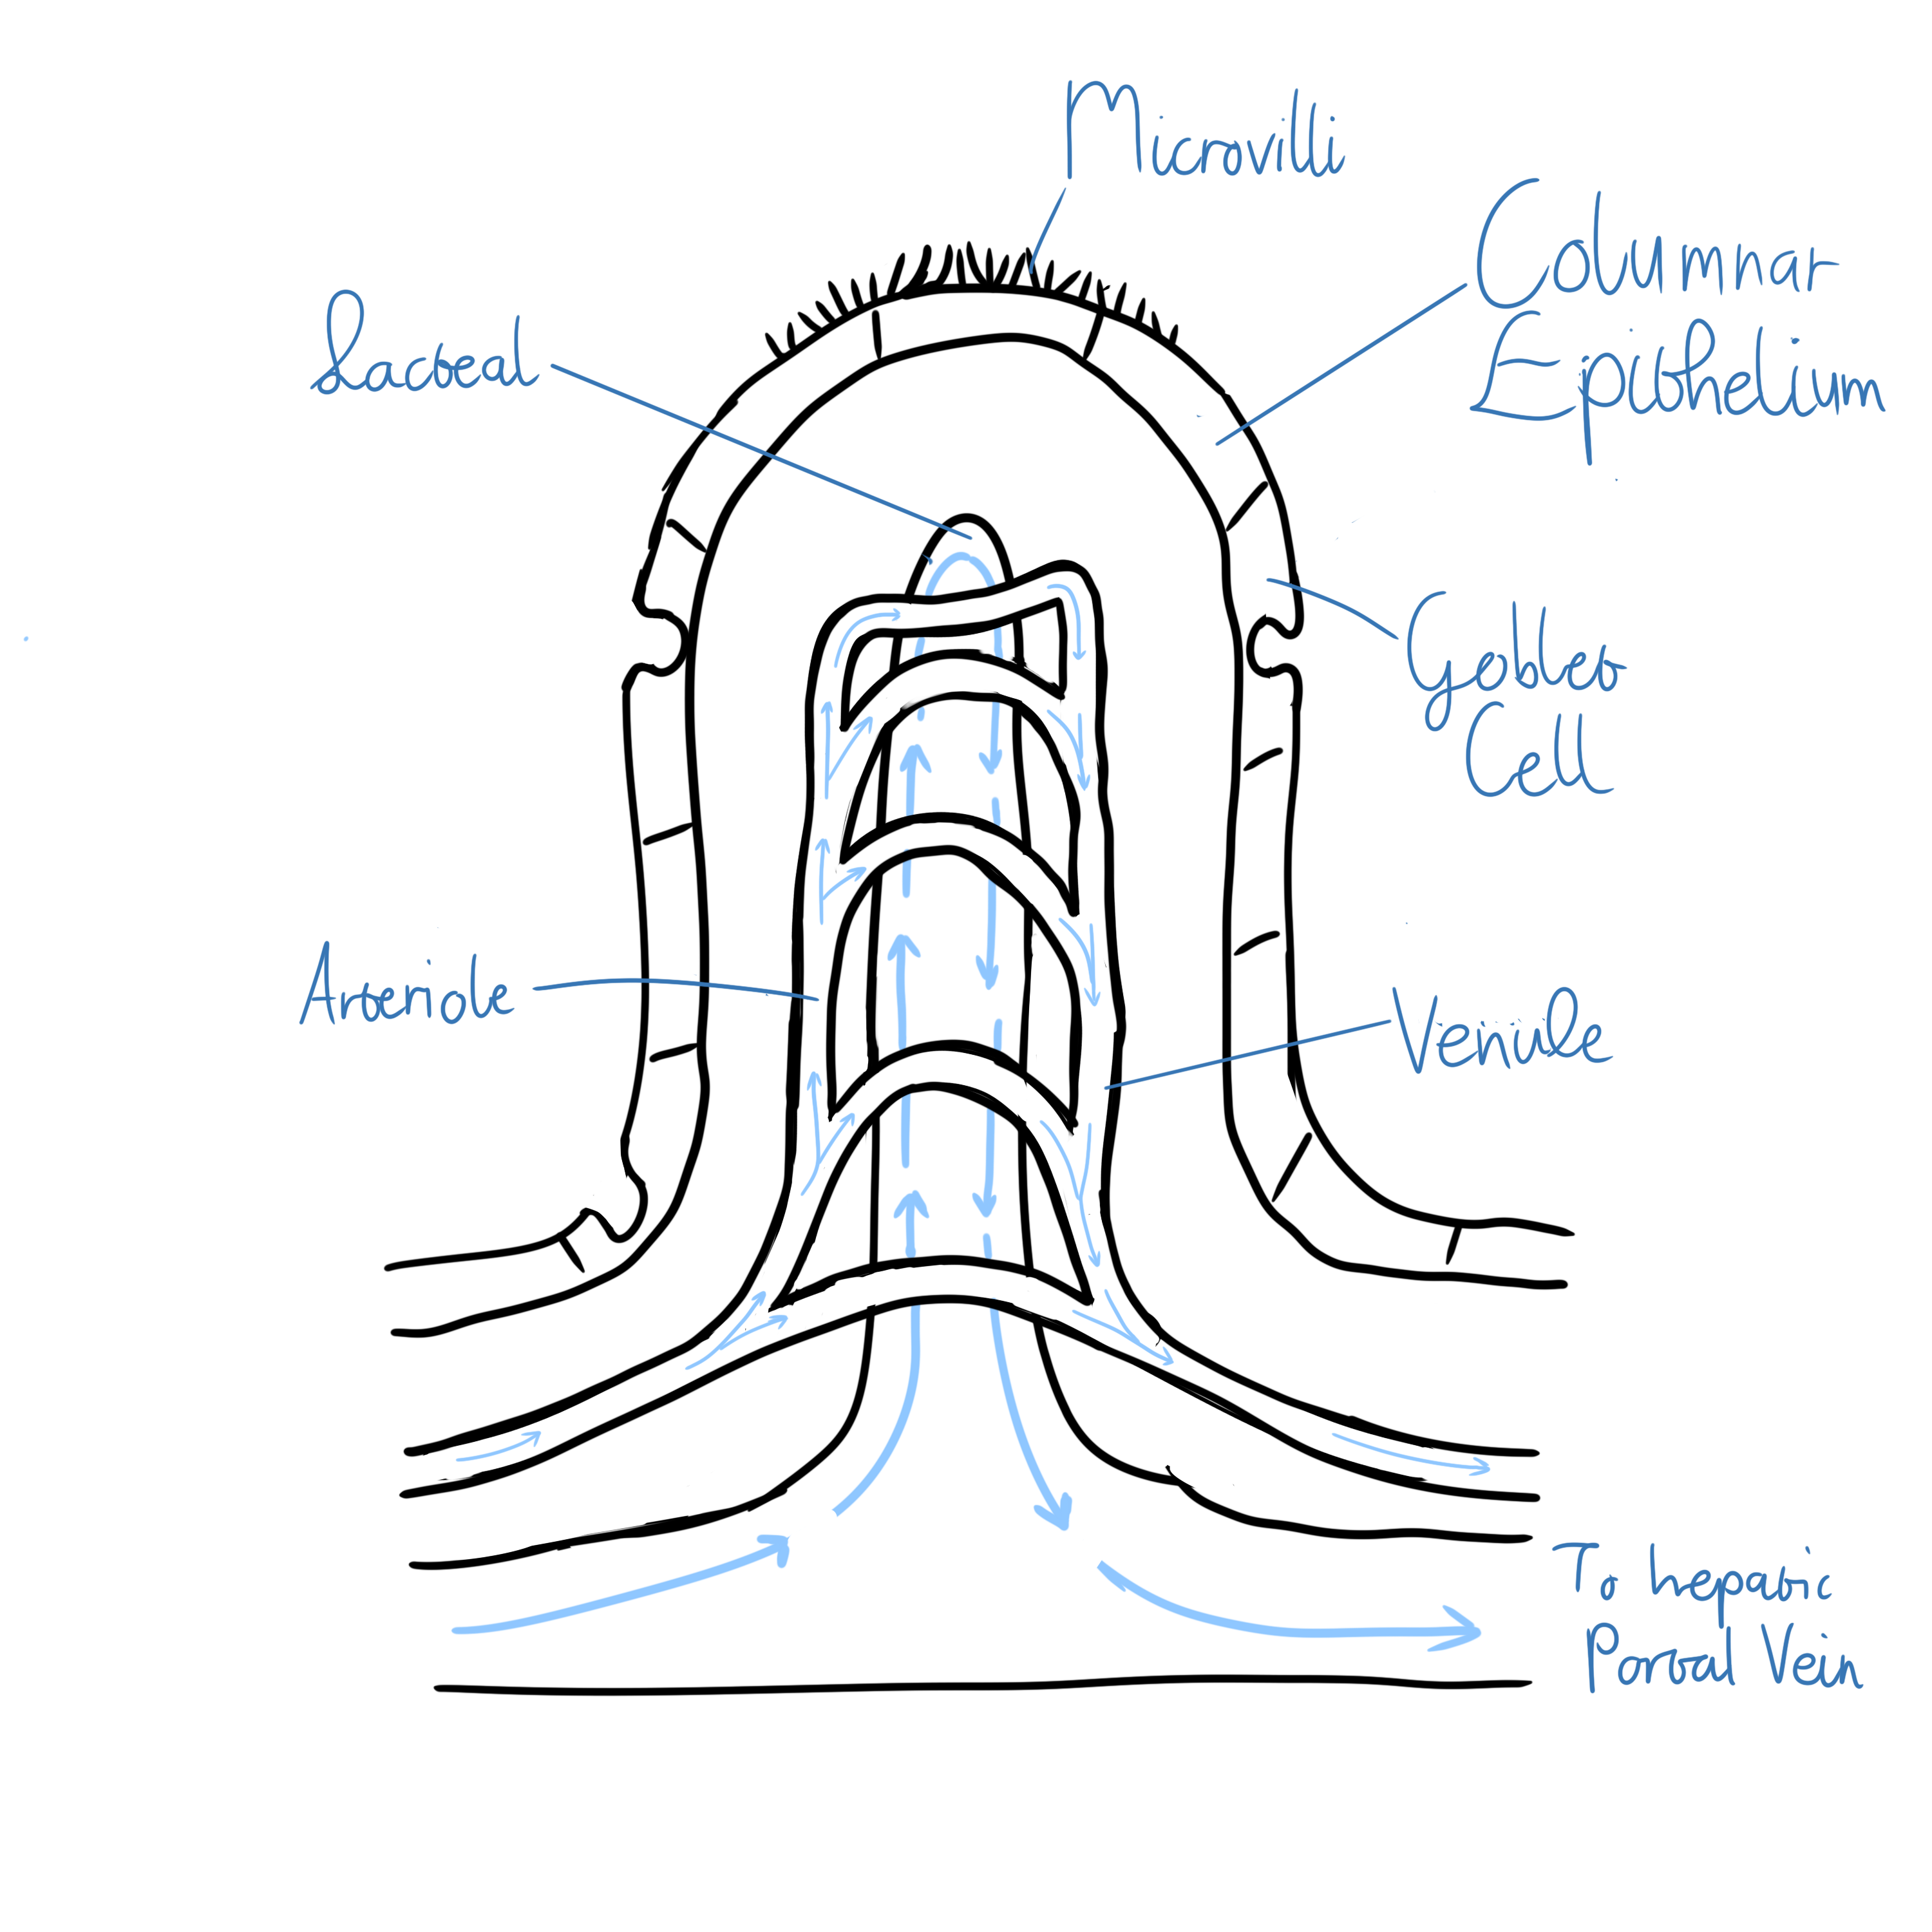 Microvilli
Columnar
Epithelium
Lacteal
Goblet
Cell
Arteriole
Venule
To hepatic
Portal Vein